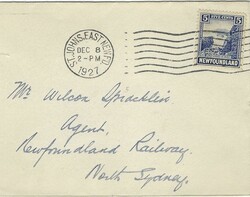 ST. JOHN'S, EAST, NEWF'L'D.
DEC 8
2-PM
1927
5 FIVE CENTS 5
NEWFOUNDLAND
Mr Wilcox
Agent,
Newfoundland Railway.
North Sydney.